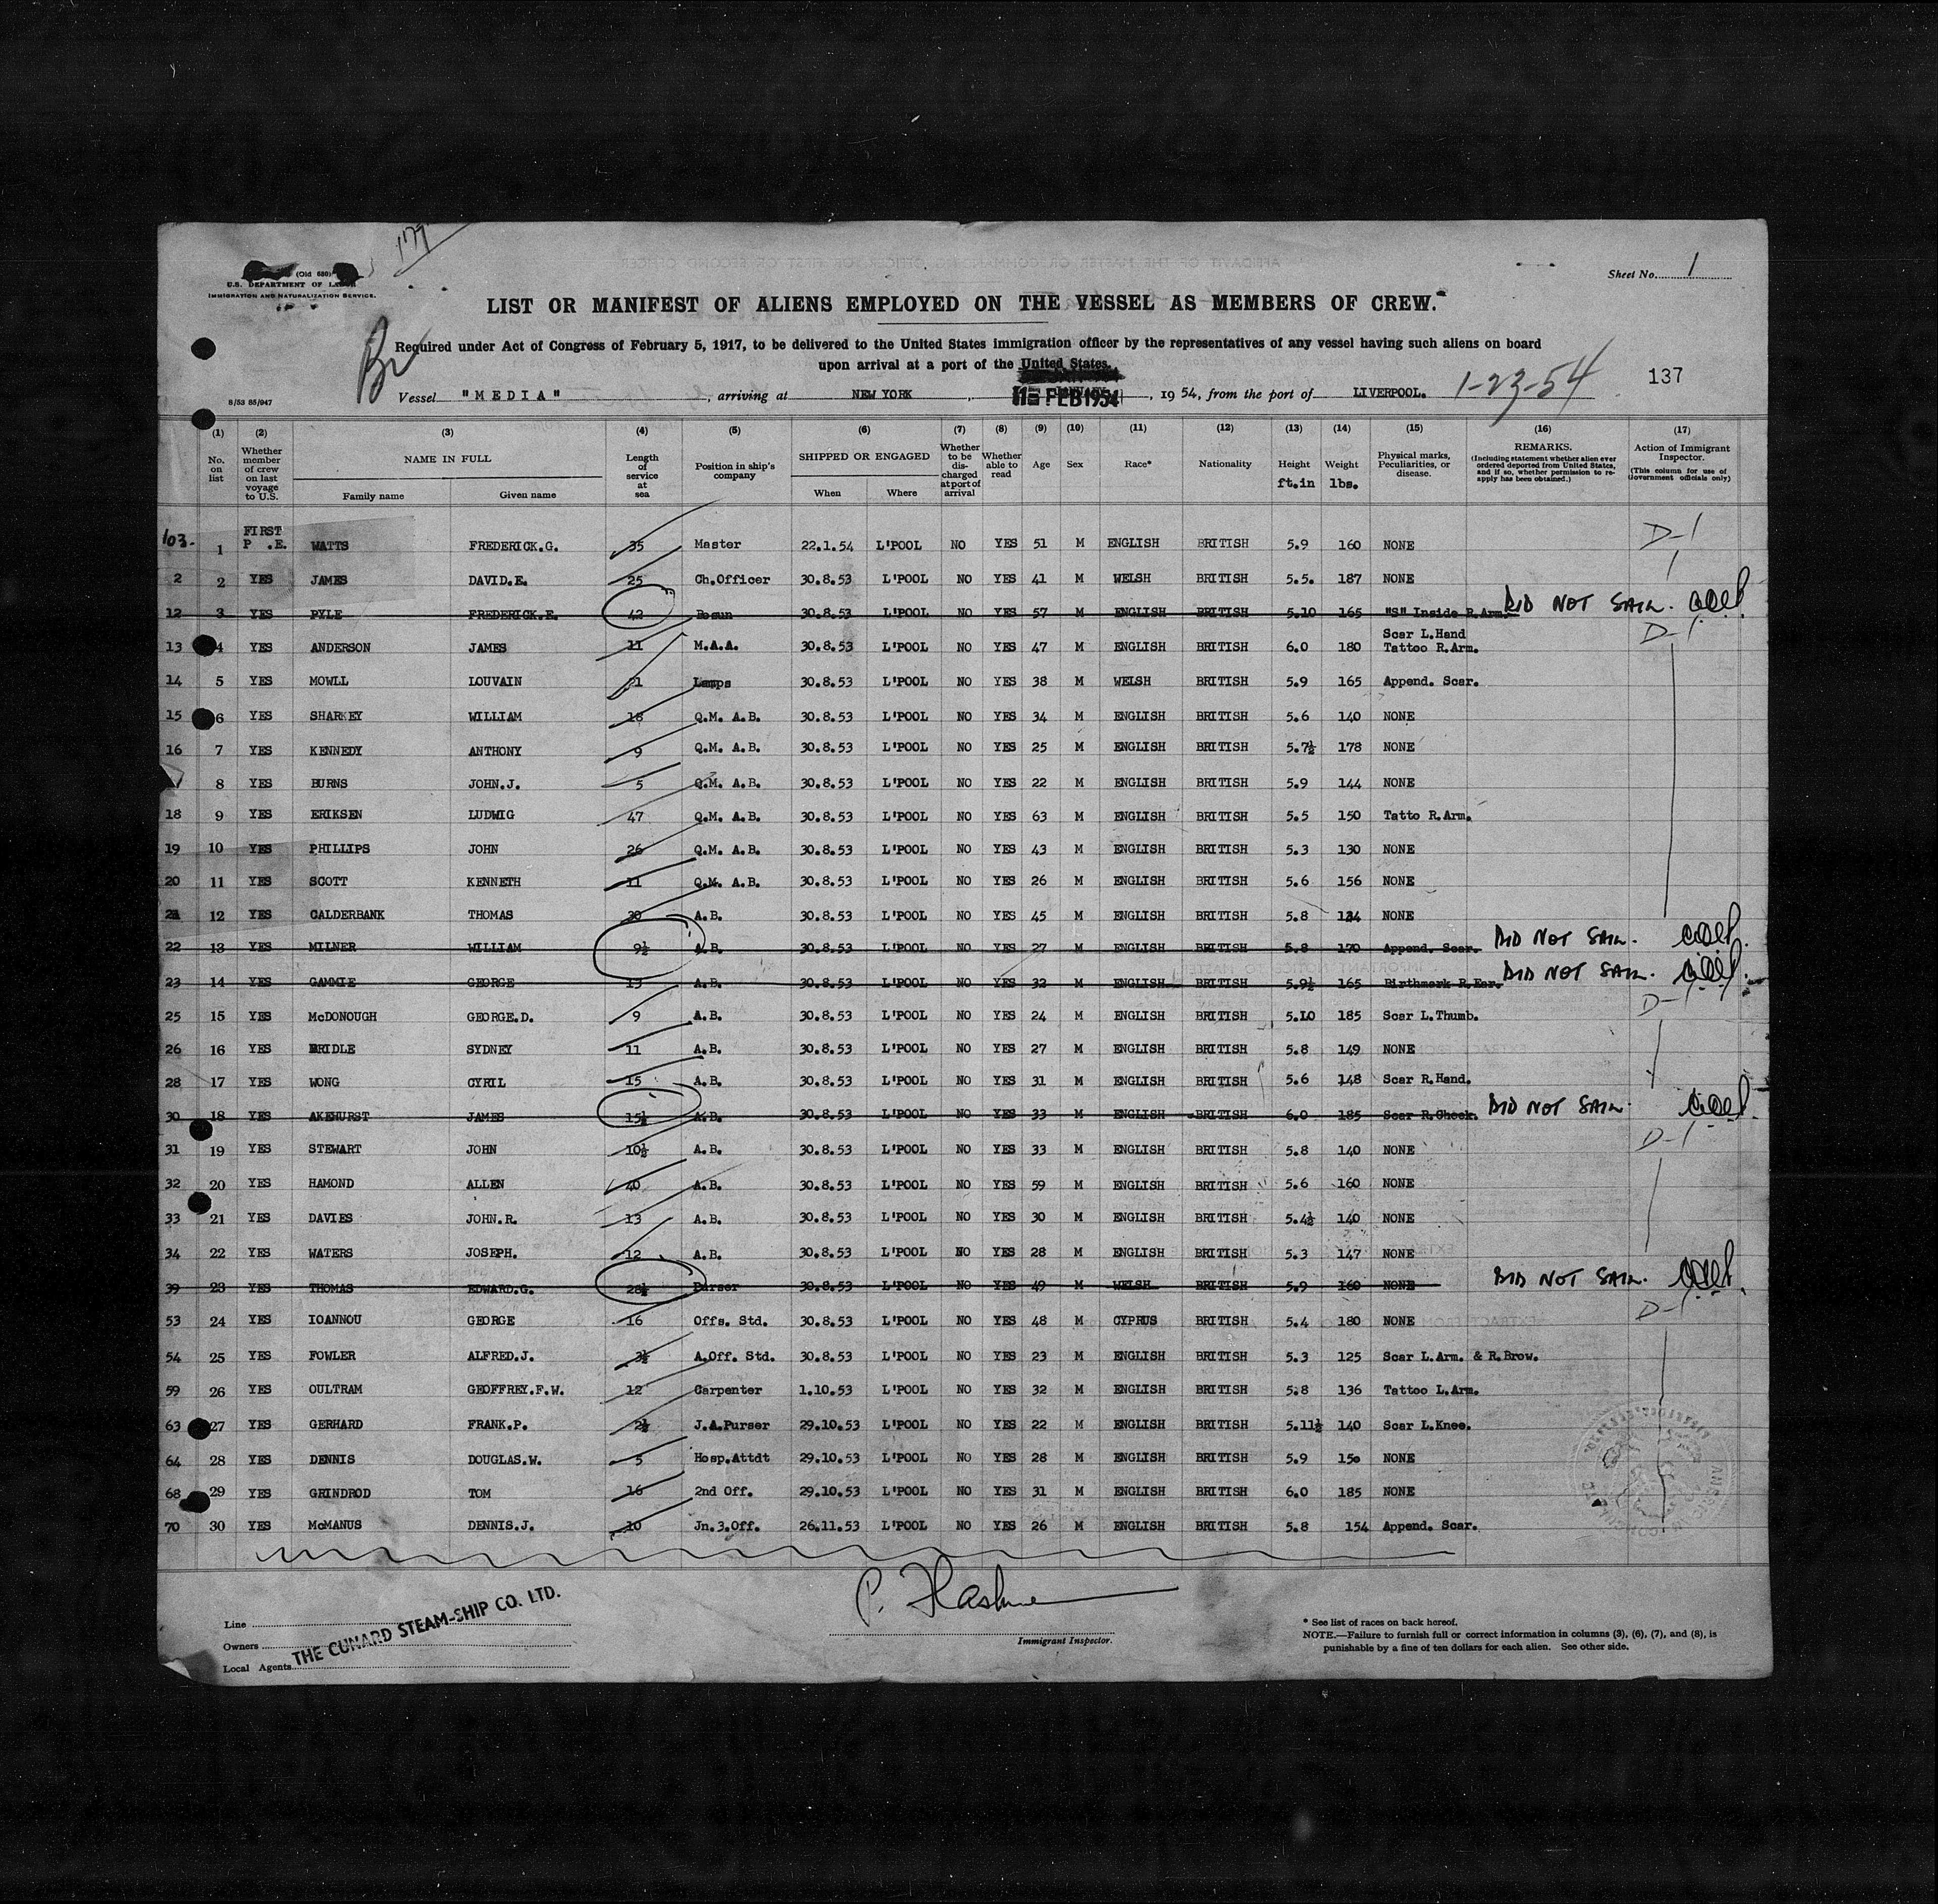 177
(Old 680)
U.S. DEPARTMENT OF LABOR
IMMIGRATION AND NATURALIZATION SERVICE.
Sheet No. 1
LIST OR MANIFEST OF ALIENS EMPLOYED ON THE VESSEL AS MEMBERS OF CREW.
Required under Act of Congress of February 5, 1917, to be delivered to the United States immigration officer by the representatives of any vessel having such aliens on board
upon arrival at a port of the United States.
Br
8/53 85/947
Vessel "MEDIA", arriving at NEW YORK, 1 - FEB 1954, 1954, from the port of LIVERPOOL. 1-23-54 137
(1) (2) (3) (4) (5) (6) (7) (8) (9) (10) (11) (12) (13) (14) (15) (16) (17)
No. on list
Whether member of crew on last voyage to U.S.
NAME IN FULL
Family name Given name
Length of service at sea
Position in ship's company
SHIPPED OR ENGAGED
When Where
Whether to be discharged at port of arrival
Whether able to read
Age
Sex
Race*
Nationality
Height ft.in
Weight lbs.
Physical marks, Peculiarities, or disease.
REMARKS. (Including statement whether alien ever ordered deported from United States, and if so, whether permission to reapply has been obtained.)
Action of Immigrant Inspector. (This column for use of Government officials only)
103. 1 FIRST P .E. WATTS FREDERICK.G. 35 Master 22.1.54 L'POOL NO YES 51 M ENGLISH BRITISH 5.9 160 NONE D-1
2 2 YES JAMES DAVID.E. 25 Ch.Officer 30.8.53 L'POOL NO YES 41 M WELSH BRITISH 5.5. 187 NONE
12 3 YES PYLE FREDERICK.E. 42 Bosun 30.8.53 L'POOL NO YES 57 M ENGLISH BRITISH 5.10 165 "S" Inside R.Arm. DID NOT SAIL.
13 4 YES ANDERSON JAMES 11 M.A.A. 30.8.53 L'POOL NO YES 47 M ENGLISH BRITISH 6.0 180 Scar L.Hand Tattoo R.Arm. D-1
14 5 YES MOWLL LOUVAIN 21 Lamps 30.8.53 L'POOL NO YES 38 M WELSH BRITISH 5.9 165 Append. Scar.
15 6 YES SHARKEY WILLIAM 18 Q.M. A.B. 30.8.53 L'POOL NO YES 34 M ENGLISH BRITISH 5.6 140 NONE
16 7 YES KENNEDY ANTHONY 9 Q.M. A.B. 30.8.53 L'POOL NO YES 25 M ENGLISH BRITISH 5.7½ 178 NONE
8 YES BURNS JOHN.J. 5 Q.M. A.B. 30.8.53 L'POOL NO YES 22 M ENGLISH BRITISH 5.9 144 NONE
18 9 YES ERIKSEN LUDWIG 47 Q.M. A.B. 30.8.53 L'POOL NO YES 63 M ENGLISH BRITISH 5.5 150 Tatto R.Arm.
19 10 YES PHILLIPS JOHN 26 Q.M. A.B. 30.8.53 L'POOL NO YES 43 M ENGLISH BRITISH 5.3 130 NONE
20 11 YES SCOTT KENNETH 11 Q.M. A.B. 30.8.53 L'POOL NO YES 26 M ENGLISH BRITISH 5.6 156 NONE
21 12 YES CALDERBANK THOMAS 30 A.B. 30.8.53 L'POOL NO YES 45 M ENGLISH BRITISH 5.8 134 NONE
22 13 YES MILNER WILLIAM 9½ A.B. 30.8.53 L'POOL NO YES 27 M ENGLISH BRITISH 5.8 170 Append. Scar. DID NOT SAIL.
23 14 YES GAMMIE GEORGE 13 A.B. 30.8.53 L'POOL NO YES 32 M ENGLISH BRITISH 5.9½ 165 Birthmark R.Ear. DID NOT SAIL.
25 15 YES McDONOUGH GEORGE.D. 9 A.B. 30.8.53 L'POOL NO YES 24 M ENGLISH BRITISH 5.10 185 Scar L.Thumb. D-1
26 16 YES BRIDLE SYDNEY 11 A.B. 30.8.53 L'POOL NO YES 27 M ENGLISH BRITISH 5.8 149 NONE
28 17 YES WONG CYRIL 15 A.B. 30.8.53 L'POOL NO YES 31 M ENGLISH BRITISH 5.6 148 Scar R.Hand.
30 18 YES AKEHURST JAMES 15½ A.B. 30.8.53 L'POOL NO YES 33 M ENGLISH BRITISH 6.0 185 Scar R.Cheek. DID NOT SAIL.
31 19 YES STEWART JOHN 10½ A.B. 30.8.53 L'POOL NO YES 33 M ENGLISH BRITISH 5.8 140 NONE D-1
32 20 YES HAMOND ALLEN 40 A.B. 30.8.53 L'POOL NO YES 59 M ENGLISH BRITISH 5.6 160 NONE
33 21 YES DAVIES JOHN.R. 13 A.B. 30.8.53 L'POOL NO YES 30 M ENGLISH BRITISH 5.4½ 140 NONE
34 22 YES WATERS JOSEPH. 12 A.B. 30.8.53 L'POOL NO YES 28 M ENGLISH BRITISH 5.3 147 NONE
39 23 YES THOMAS EDWARD.G. 28½ Purser 30.8.53 L'POOL NO YES 49 M WELSH BRITISH 5.9 160 NONE DID NOT SAIL.
53 24 YES IOANNOU GEORGE 16 Offs. Std. 30.8.53 L'POOL NO YES 48 M CYPRUS BRITISH 5.4 180 NONE D-1
54 25 YES FOWLER ALFRED.J. 3½ A.Off. Std. 30.8.53 L'POOL NO YES 23 M ENGLISH BRITISH 5.3 125 Scar L.Arm. & R.Brow.
59 26 YES OULTRAM GEOFFREY.F.W. 12 Carpenter 1.10.53 L'POOL NO YES 32 M ENGLISH BRITISH 5.8 136 Tattoo L.Arm.
63 27 YES GERHARD FRANK.P. 2½ J.A.Purser 29.10.53 L'POOL NO YES 22 M ENGLISH BRITISH 5.11½ 140 Scar L.Knee.
64 28 YES DENNIS DOUGLAS.W. 5 Hosp.Attdt 29.10.53 L'POOL NO YES 28 M ENGLISH BRITISH 5.9 150 NONE
68 29 YES GRINDROD TOM 16 2nd Off. 29.10.53 L'POOL NO YES 31 M ENGLISH BRITISH 6.0 185 NONE
70 30 YES McMANUS DENNIS.J. 10 Jn.3.Off. 26.11.53 L'POOL NO YES 26 M ENGLISH BRITISH 5.8 154 Append. Scar.
Line
Owners
Local Agents
THE CUNARD STEAM-SHIP CO. LTD.
Immigrant Inspector.
* See list of races on back hereof.
NOTE.—Failure to furnish full or correct information in columns (3), (6), (7), and (8), is
punishable by a fine of ten dollars for each alien. See other side.